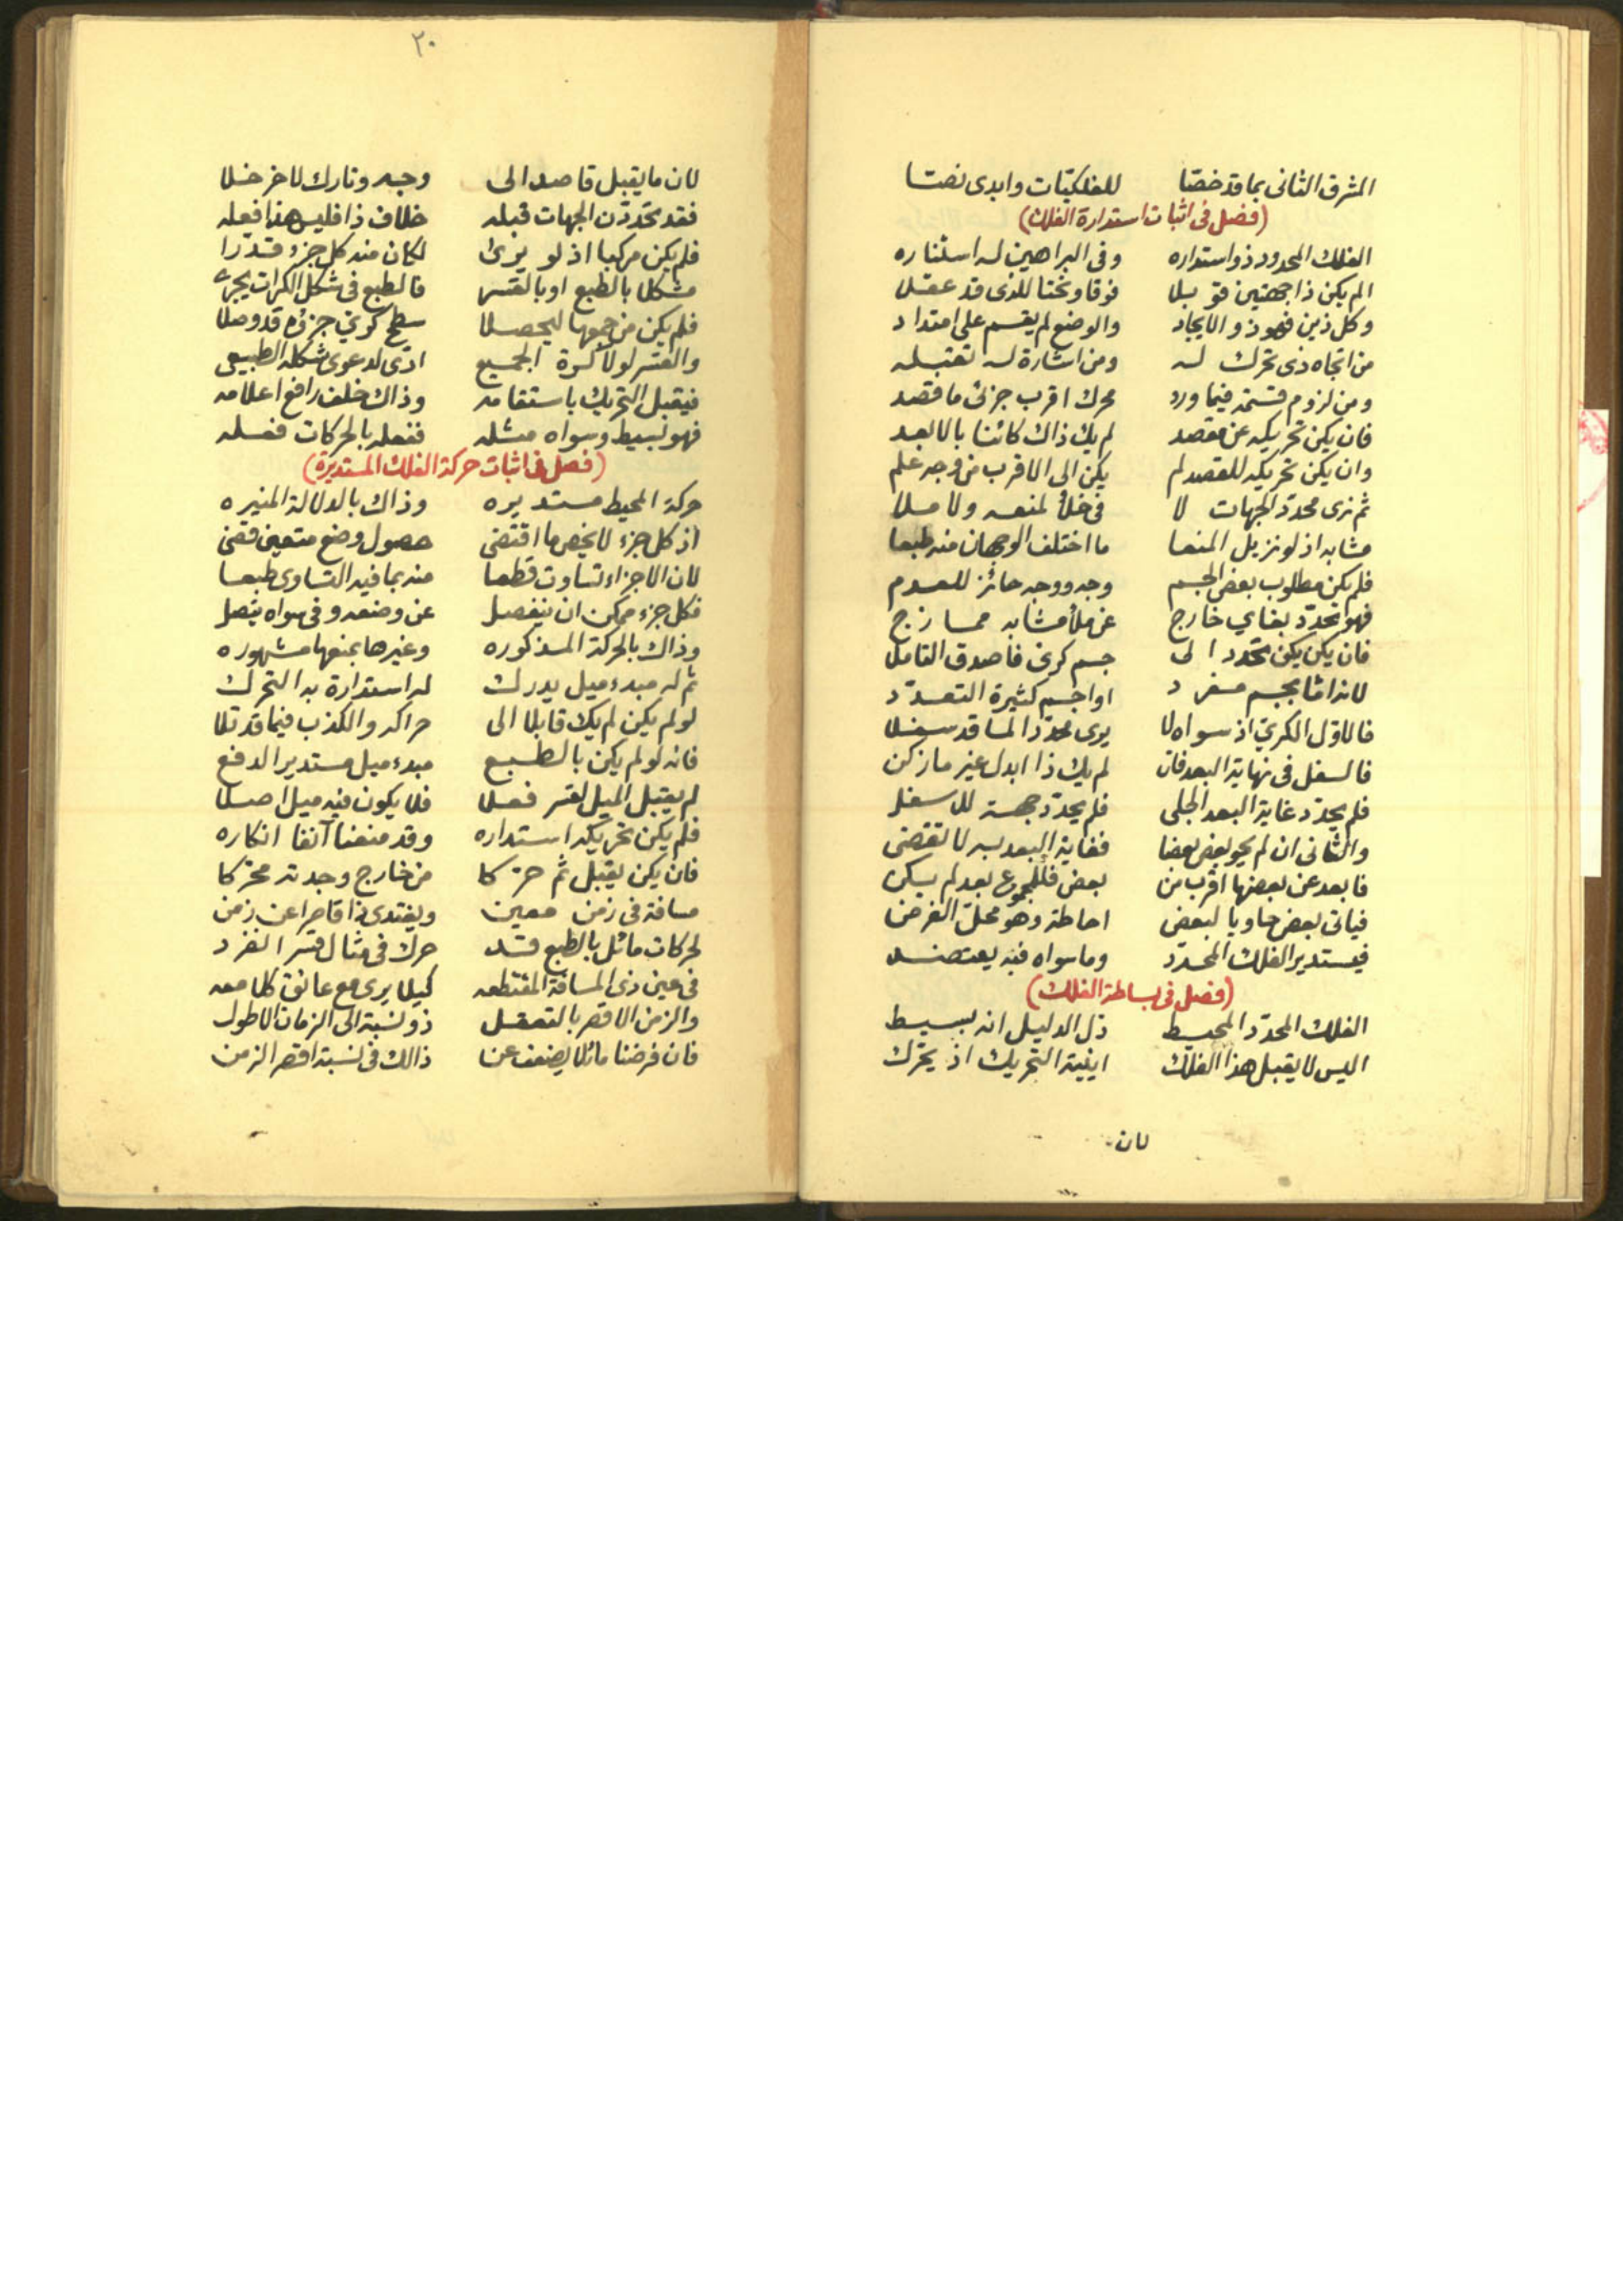 المشرق الثانى بما قد خصّا للفلكيّات وابدى نصّا
(فصل فى اثبات استدارة الفلك)
الفلك المحدود ذو استداره وفى البراهين له استناره
الم يكن ذا جهتين قوبلا فوقا وتحتا للذى قد عقلا
وكل ذين فهو ذو الايجاد والوضع لم يقسم على امتداد
من اتجاه ذى تحرك له ومن اشارة له تقبله
ومن لزوم قسمة فيما ورد محرك اقرب جزئى ما قصد
فان يكن تحريكه عن مقصد لم يك ذاك كائنا بالابعد
وان يكن تحريكه للقصد لم يكن الى الاقرب من وجه علم
ثم نرى محدّد الجهات لا فى خلأ لمنعه ولا ملا
مشابه اذ لو نزيل المنعا ما اختلف الوجهان منه طبعا
فلم يكن مطلوب بعض الجسم وجه ووجه حائز للعدم
فهو تحدّد بغاي خارج عن ملأ مشابه ممازج
فان يكن يكن تحدد الى جسم كرى فاصدق التأملا
لانه اما بجسم مفرد او اجسم كثيرة التعدّد
فالاوّل الكريّ اذ سواه لا يرى محدّدا لما قد سفلا
فالسفل فى نهاية البعد فان لم يك ذا ابدل غير ما زكن
فلم يحدّد غاية البعد الجلى فلم يحدّد جهة للاسفل
والثانى ان لم يحو بعض بعضا فغاية البعد به لا تقضى
فابعد عن بعضها اقرب من بعض فللمجموع بعد لم يكن
فيأتى بعض حاويا لبعض احاطة وهو محل الغرض
فيستدير الفلك المحدّد وما سواه فبه يعتضد
(فصل فى بساطة الفلك)
الفلك المحدّد المحيط دلّ الدليل انه بسيط
اليس لا يقبل هذا الفلك اينية التحريك اذ يحرّك
لان
٢٠
لان ما يقبل قاصد الى وجه وتارك لاخر خلا
فقد تحدّدن الجهات قبله خلاف ذا فليس هذا فعله
فلم يكن مركبا اذ لو يرى لكان منه كل جزء قدرا
مشكلا بالطبع او بالقسر فالطبع فى شكل الكرات يجرى
فلم يكن من جمعها ليحصلا سطح كريّ جزؤه قد وصلا
والقسر لولا كرة الجميع ادّى لدعوى شكله الطبيعى
فيقبل التحريك باستقامه وذاك خلف رافع اعلامه
فهو بسيط وسواه مثله ففعله بالحركات فعله
(فصل فى اثبات حركة الفلك المستديرة)
حركة المحيط مستديره وذاك بالدلالة المنيره
اذ كل جزء لا يخص ما اقتضى حصول وضع متعين قضى
لان الاجزاء تساوت قطعا منه بما فيه التساوى طبعا
فكل جزء ممكن ان ينفصل عن وضعه وفى سواه يتصل
وذاك بالحركة المذكوره وغيرها بمنعها مشهوره
ثم له مبدء ميل يدرك له استدارة به التحرك
لو لم يكن لم يك قابلا الى حراكه والكذب فيما قد تلا
فانه لو لم يكن بالطبع مبدء ميل مستدير الدفع
لم يقبل الميل لقسر فعلا فلا يكون فيه ميل اصلا
فلم يكن تحريكه استداره وقد منعنا آنفا انكاره
فان يكن يقبل ثم حرّكا من خارج وجدته محرّكا
مسافة فى زمن معين ويغتدى ذا قاصرا عن زمن
لحركات مائل بالطبع قد حرك فى مثال قسر انفرد
فى عين ذى المسافة المقتطعه كيلا يرى مع عائق كلا معه
والزمن الاقصر بالتعقل ذو نسبة الى الزمان الاطول
فان فرضنا مائلا يضعف عن ذالك فى نسبة اقصر الزمن